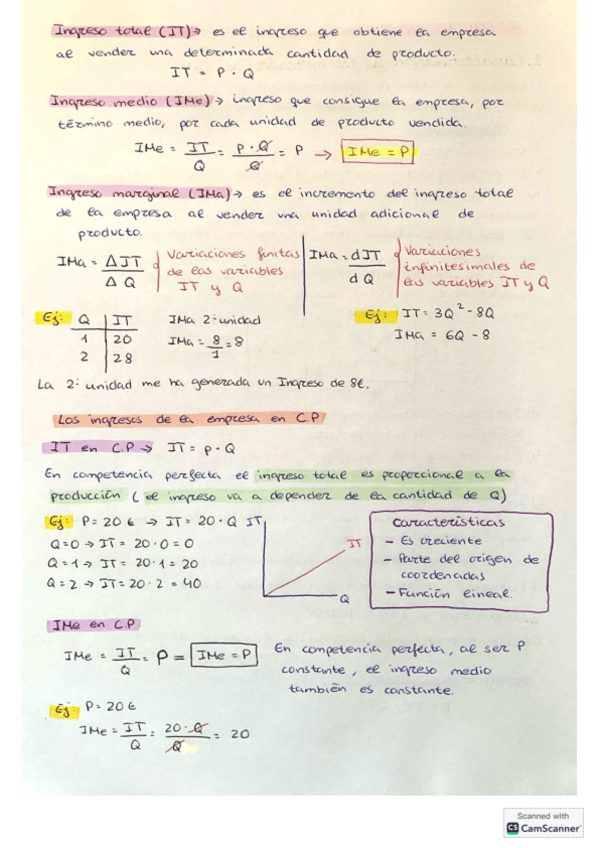 Ingreso total (IT) → es el ingreso que obtiene la empresa
al vender una determinada cantidad de producto.
IT = P · Q
Ingreso medio (IMe) → ingreso que consigue la empresa, por
término medio, por cada unidad de producto vendida.
IMe = IT/Q = P·Q/Q = P → IMe = P
Ingreso marginal (IMa) → es el incremento del ingreso total
de la empresa al vender una unidad adicional de
producto.
IMa = ΔIT/ΔQ Variaciones finitas de las variables IT y Q
IMa = dIT/dQ Variaciones infinitesimales de las variables IT y Q
Ej: Q IT IMa 2ª unidad
1 20 IMa = 8/1 = 8
2 28
Ej: IT = 3Q² - 8Q
IMa = 6Q - 8
La 2ª unidad me ha generada un Ingreso de 8€.
Los ingresos de la empresa en C.P
IT en C.P → IT = p · Q
En competencia perfecta el ingreso total es proporcional a la
producción (el ingreso va a depender de la cantidad de Q)
Ej: P = 20 € → IT = 20 · Q
Q = 0 → IT = 20 · 0 = 0
Q = 1 → IT = 20 · 1 = 20
Q = 2 → IT = 20 · 2 = 40
IT
IT
Q
Características
- Es creciente
- Parte del origen de
coordenadas
- Función lineal.
IMe en C.P
IMe = IT/Q = P = IMe = P
En competencia perfecta, al ser P
constante, el ingreso medio
también es constante.
Ej: P = 20 €
IMe = IT/Q = 20·Q/Q = 20
Scanned with
CS CamScanner